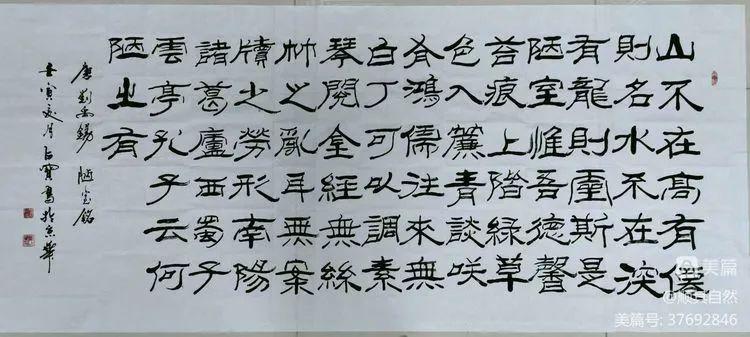 山不在高有僊
則名水不在深
有龍則靈斯是
陋室惟吾德馨
苔痕上階緑草
色入簾青談咲
有鴻儒往來無
白丁可以調素
琴閱金經無絲
竹之亂耳無案
牘之勞形南陽
諸葛廬西蜀子
雲亭孔子云何
陋之有
唐劉禹錫 陋室銘
壬寅夏月 寶書於京華
美篇
@顺其自然
美篇号: 37692846